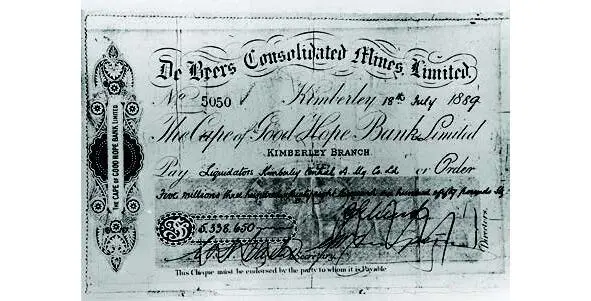 De Beers Consolidated Mines, Limited.
No 5050 Kimberley 18th July 1889
The Cape of Good Hope Bank Limited
KIMBERLEY BRANCH.
Pay Liquidators Kimberley Central D. Mg Co. Ld or Order
Five millions three hundred thirty eight thousand six hundred & fifty Pounds Stg
£ 5.338.650
Secretary
Directors.
This Cheque must be endorsed by the party to whom it is Payable
THE CAPE OF GOOD HOPE BANK LIMITED